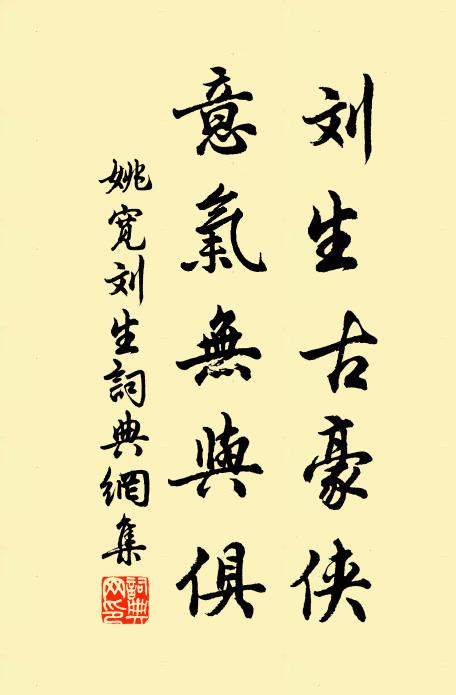 刘生古豪侠
意氣無與俱
姚寬刘生詞典網集
詞典网印